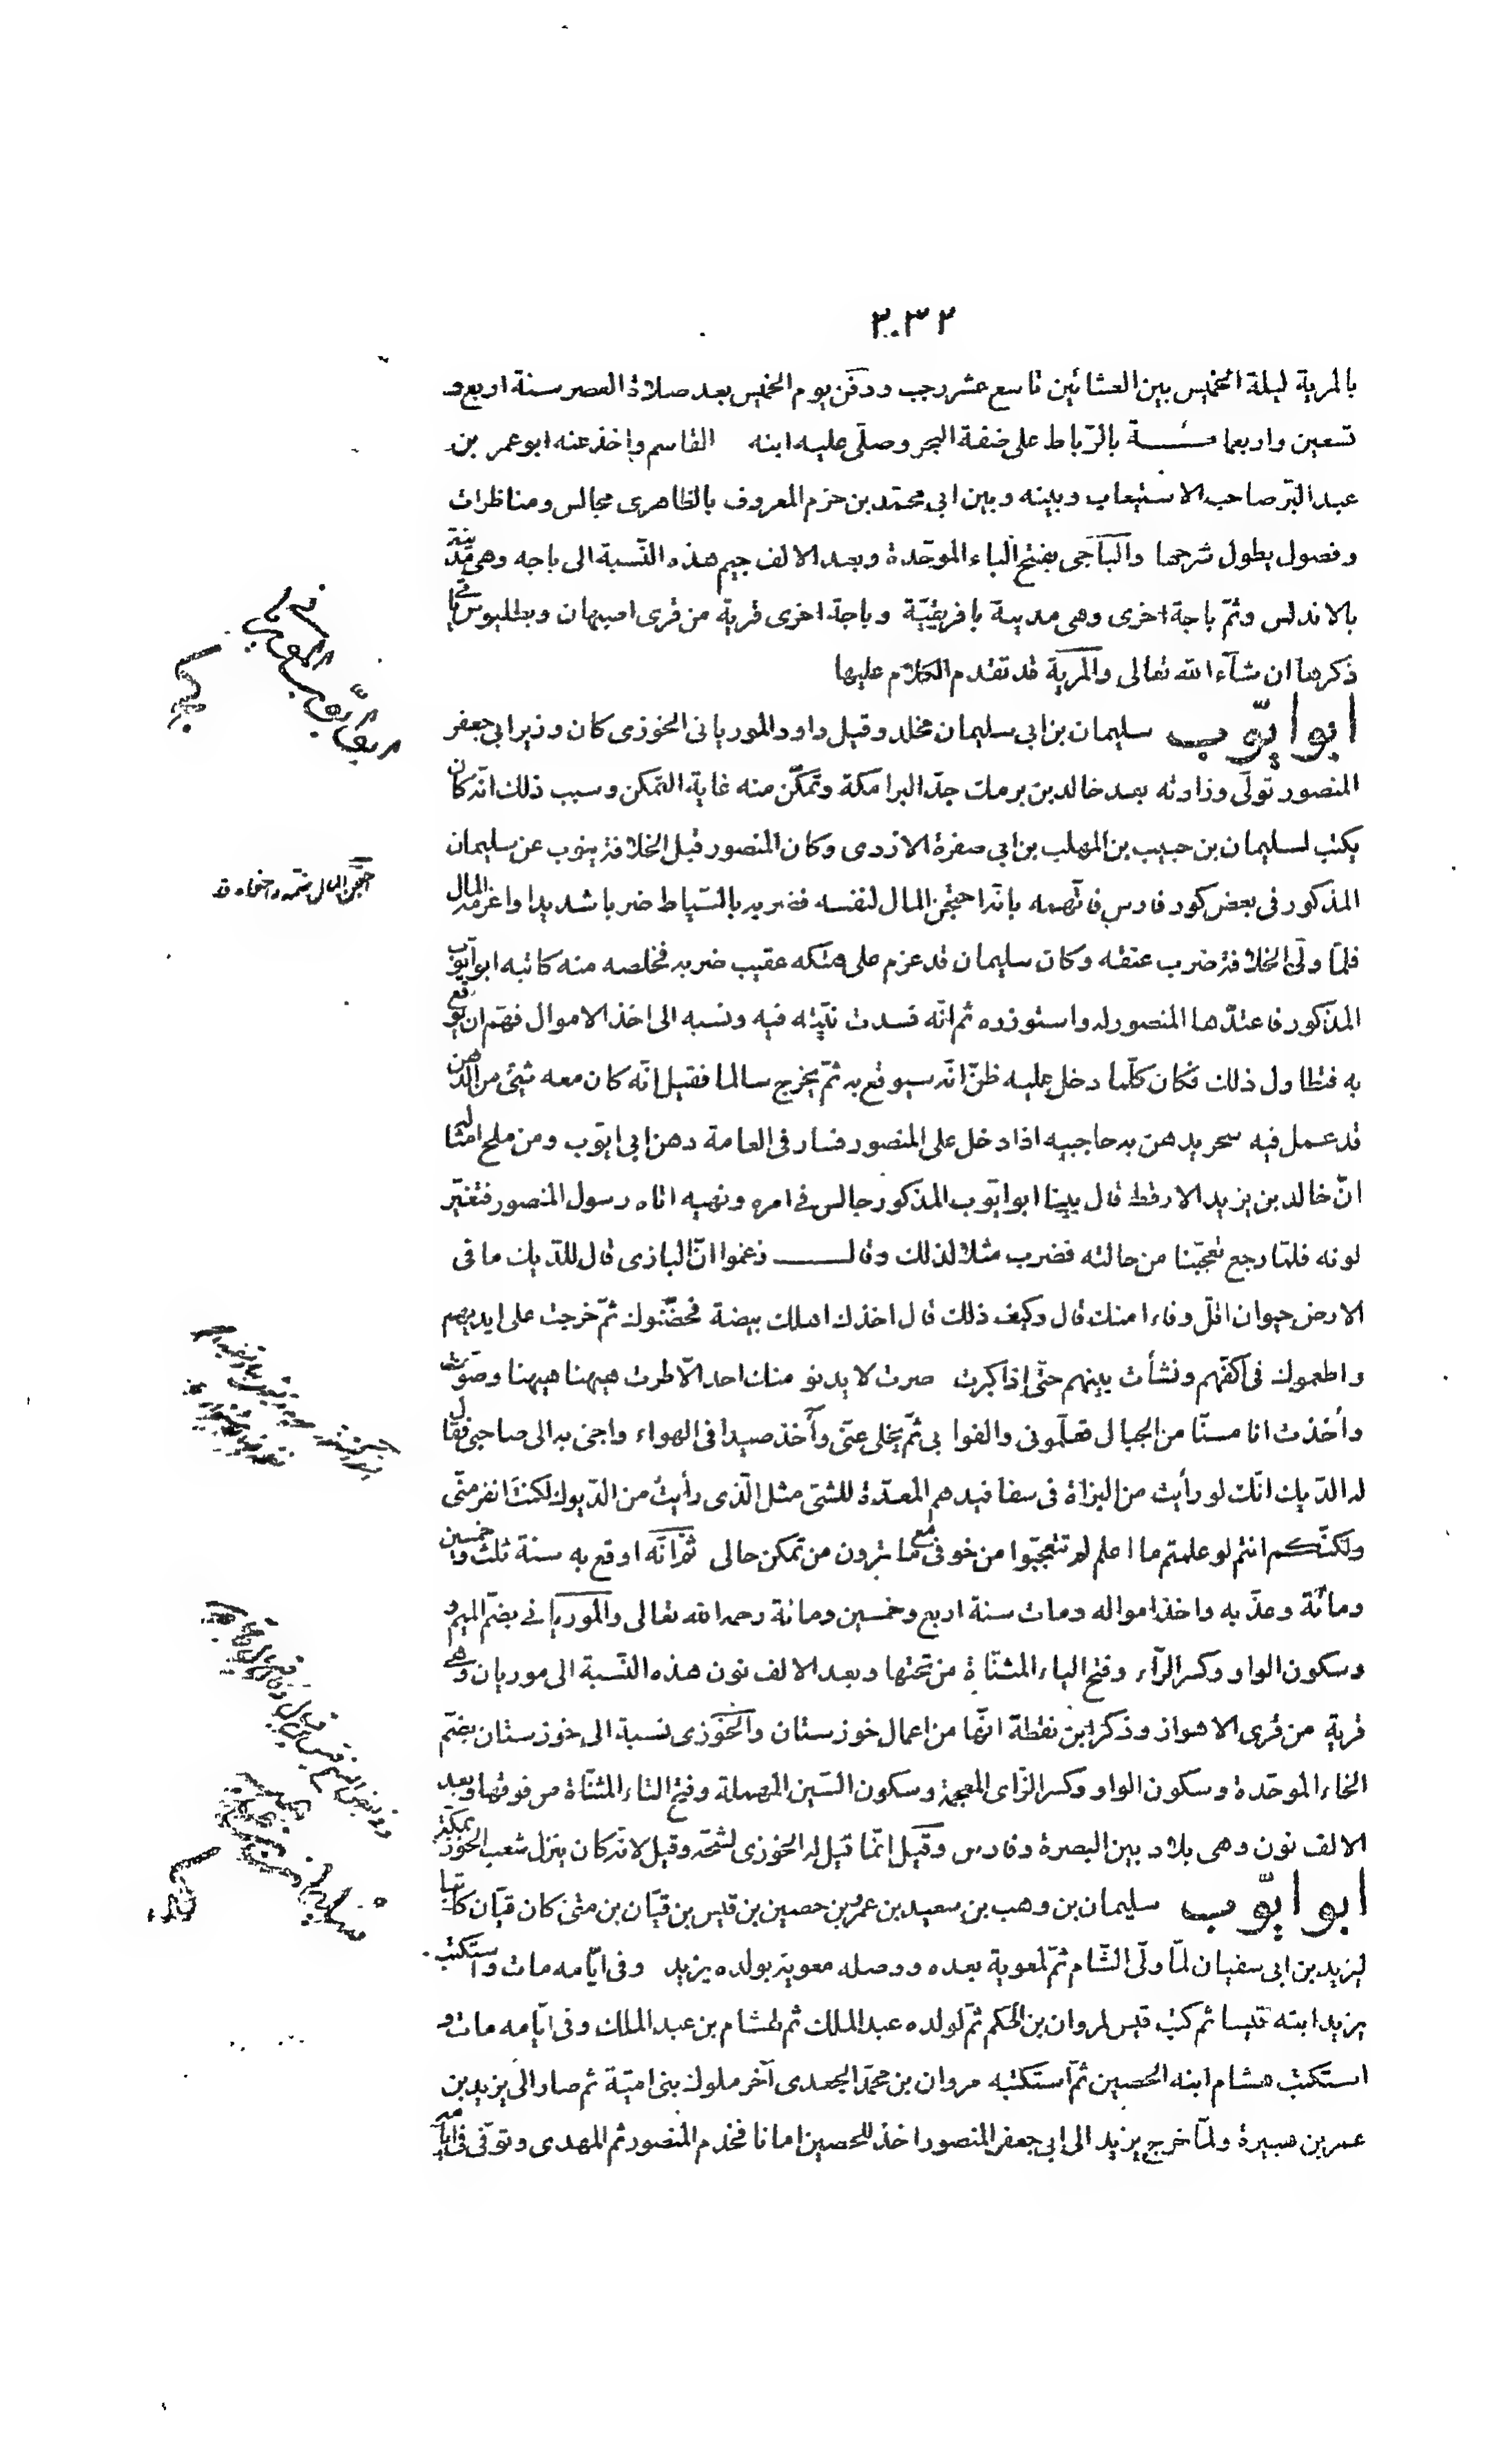 ٢٠٣٢
بالمرية ليلة الخميس بين العشائين تاسع عشر رجب ودفن يوم الخميس بعد صلاة العصر سنة اربع و
تسعين واربعمائة بالرّباط على ضفة البحر وصلّى عليه ابنه القاسم واخذ عنه ابو عمر بن
عبد البرّ صاحب الاستيعاب وبينه وبين ابى محمّد بن حزم المعروف بالظاهرى مجالس ومناظرات
وفصول يطول شرحها والباجى بفتح الباء الموحّدة وبعد الالف جيم هذه النّسبة الى باجه وهى مدينة
بالاندلس وثمّ باجة اخرى وهى مدينة بافريقيّة وباجة اخرى قرية من قرى اصبهان وبطليوس ياتى
ذكرها ان شآء الله تعالى والمرية قد تقدم الكلام عليها
ابو ايّوب سليمان بن ابى سليمان مخلد وقيل داود الموريانى الخوزى كان وزير ابى جعفر
المنصور تولّى وزارته بعد خالد بن برمك جدّ البرامكة وتمكّن منه غاية التمكن وسبب ذلك انّه كان
يكتب لسليمان بن حبيب بن المهلب بن ابى صفرة الازدى وكان المنصور قبل الخلافة ينوب عن سليمان
المذكور فى بعض كور فارس فاتّهمه بانّه احتجن المال لنفسه فضربه بالسّياط ضربا شديدا واغرمه المال
فلمّا ولّى الخلافة ضرب عنقه وكان سليمان قد عزم على هتكه عقيب ضربه فخلصه منه كاتبه ابو ايّوب
المذكور فاعتدّها المنصور له واستوزره ثم انّه فسدت نيّته فيه ونسبه الى اخذ الاموال فهمّ ان يوقع
به فتطاول ذلك فكان كلّما دخل عليه ظنّ انّه سيوقع به ثمّ يخرج سالما فقيل انّه كان معه شيئ من الدهن
قد عمل فيه سحر يدهن به حاجبيه اذا دخل على المنصور فسار فى العامة دهن ابى ايّوب ومن ملح امثاله
انّ خالد بن يزيد الارقط قال بينا ابو ايّوب المذكور جالس فى امره ونهيه اتاه رسول المنصور فتغيّر
لونه فلمّا رجع تعجّبنا من حالته فضرب مثلا لذلك وقال زعموا انّ البازى قال للدّيك ما فى
الارض حيوان اقلّ وفاءا منك قال وكيف ذلك قال اخذك اهلك بيضة فحضّنوك ثمّ خرجت على ايديهم
واطعموك فى اكفّهم ونشأت بينهم حتّى اذا كبرت صرت لا يدنو منك احد الاّ طرت هيهنا هيهنا وصوّت
وأخذت انا مسنّا من الجبال فعلّمونى والفوا بى ثمّ يخلى عنّى وآخذ صيدا فى الهواء واجئ به الى صاحبى فقال
له الدّيك انّك لو رأيت من البزاة فى سفافيدهم المعدّة للشىّ مثل الّذى رأيتُ من الدّيوك لكنتَ انفر منّى
ولكنّكم انتم لو علمتم ما اعلم لم تتعجّبوا من خوفى مع ما ترون من تمكن حالى ثمّ انّه اوقع به سنة ثلث وخمسين
ومائة وعذّبه واخذ امواله ومات سنة اربع وخمسين ومائة رحمه الله تعالى والموريانى بضمّ الميم و
وسكون الواو وكسر الرّآء وفتح الياء المثنّاة من تحتها وبعد الالف نون هذه النّسبة الى موريان وهى
قرية من قرى الاهواز وذكر ابن نقطة انّها من اعمال خوزستان والخوزى نسبة الى خوزستان بضمّ
الخاء الموحّدة وسكون الواو وكسر الزّاى المعجمة وسكون السّين المهملة وفتح التاء المثنّاة من فوقها وبعد
الالف نون وهى بلاد بين البصرة وفارس وقيل انّما قيل له الخوزى لشحّه وقيل لانّه كان ينزل شعب الخوز بمكّة
ابو ايّوب سليمان بن وهب بن سعيد بن عمرو بن حصين بن قيس بن قيّان بن متى كان قيّان كاتبا
ليزيد بن ابى سفيان لمّا ولّى الشّام ثمّ لمعوية بعده ووصله معوية بولده يزيد وفى ايّامه مات واستكتب
يزيد ابنه قيسا ثم كتب قيس لمروان بن الحكم ثمّ لولده عبد الملك ثم لهشام بن عبد الملك وفى ايّامه مات و
استكتب هشام ابنه الحصين ثمّ استكتبه مروان بن محمّد الجعدى آخر ملوك بنى اميّة ثم صار الى يزيد بن
عمر بن هبيرة ولمّا خرج يزيد الى ابى جعفر المنصور اخذ للحصين امانا فخدم المنصور ثم المهدى وتوفّى فى ايّامه